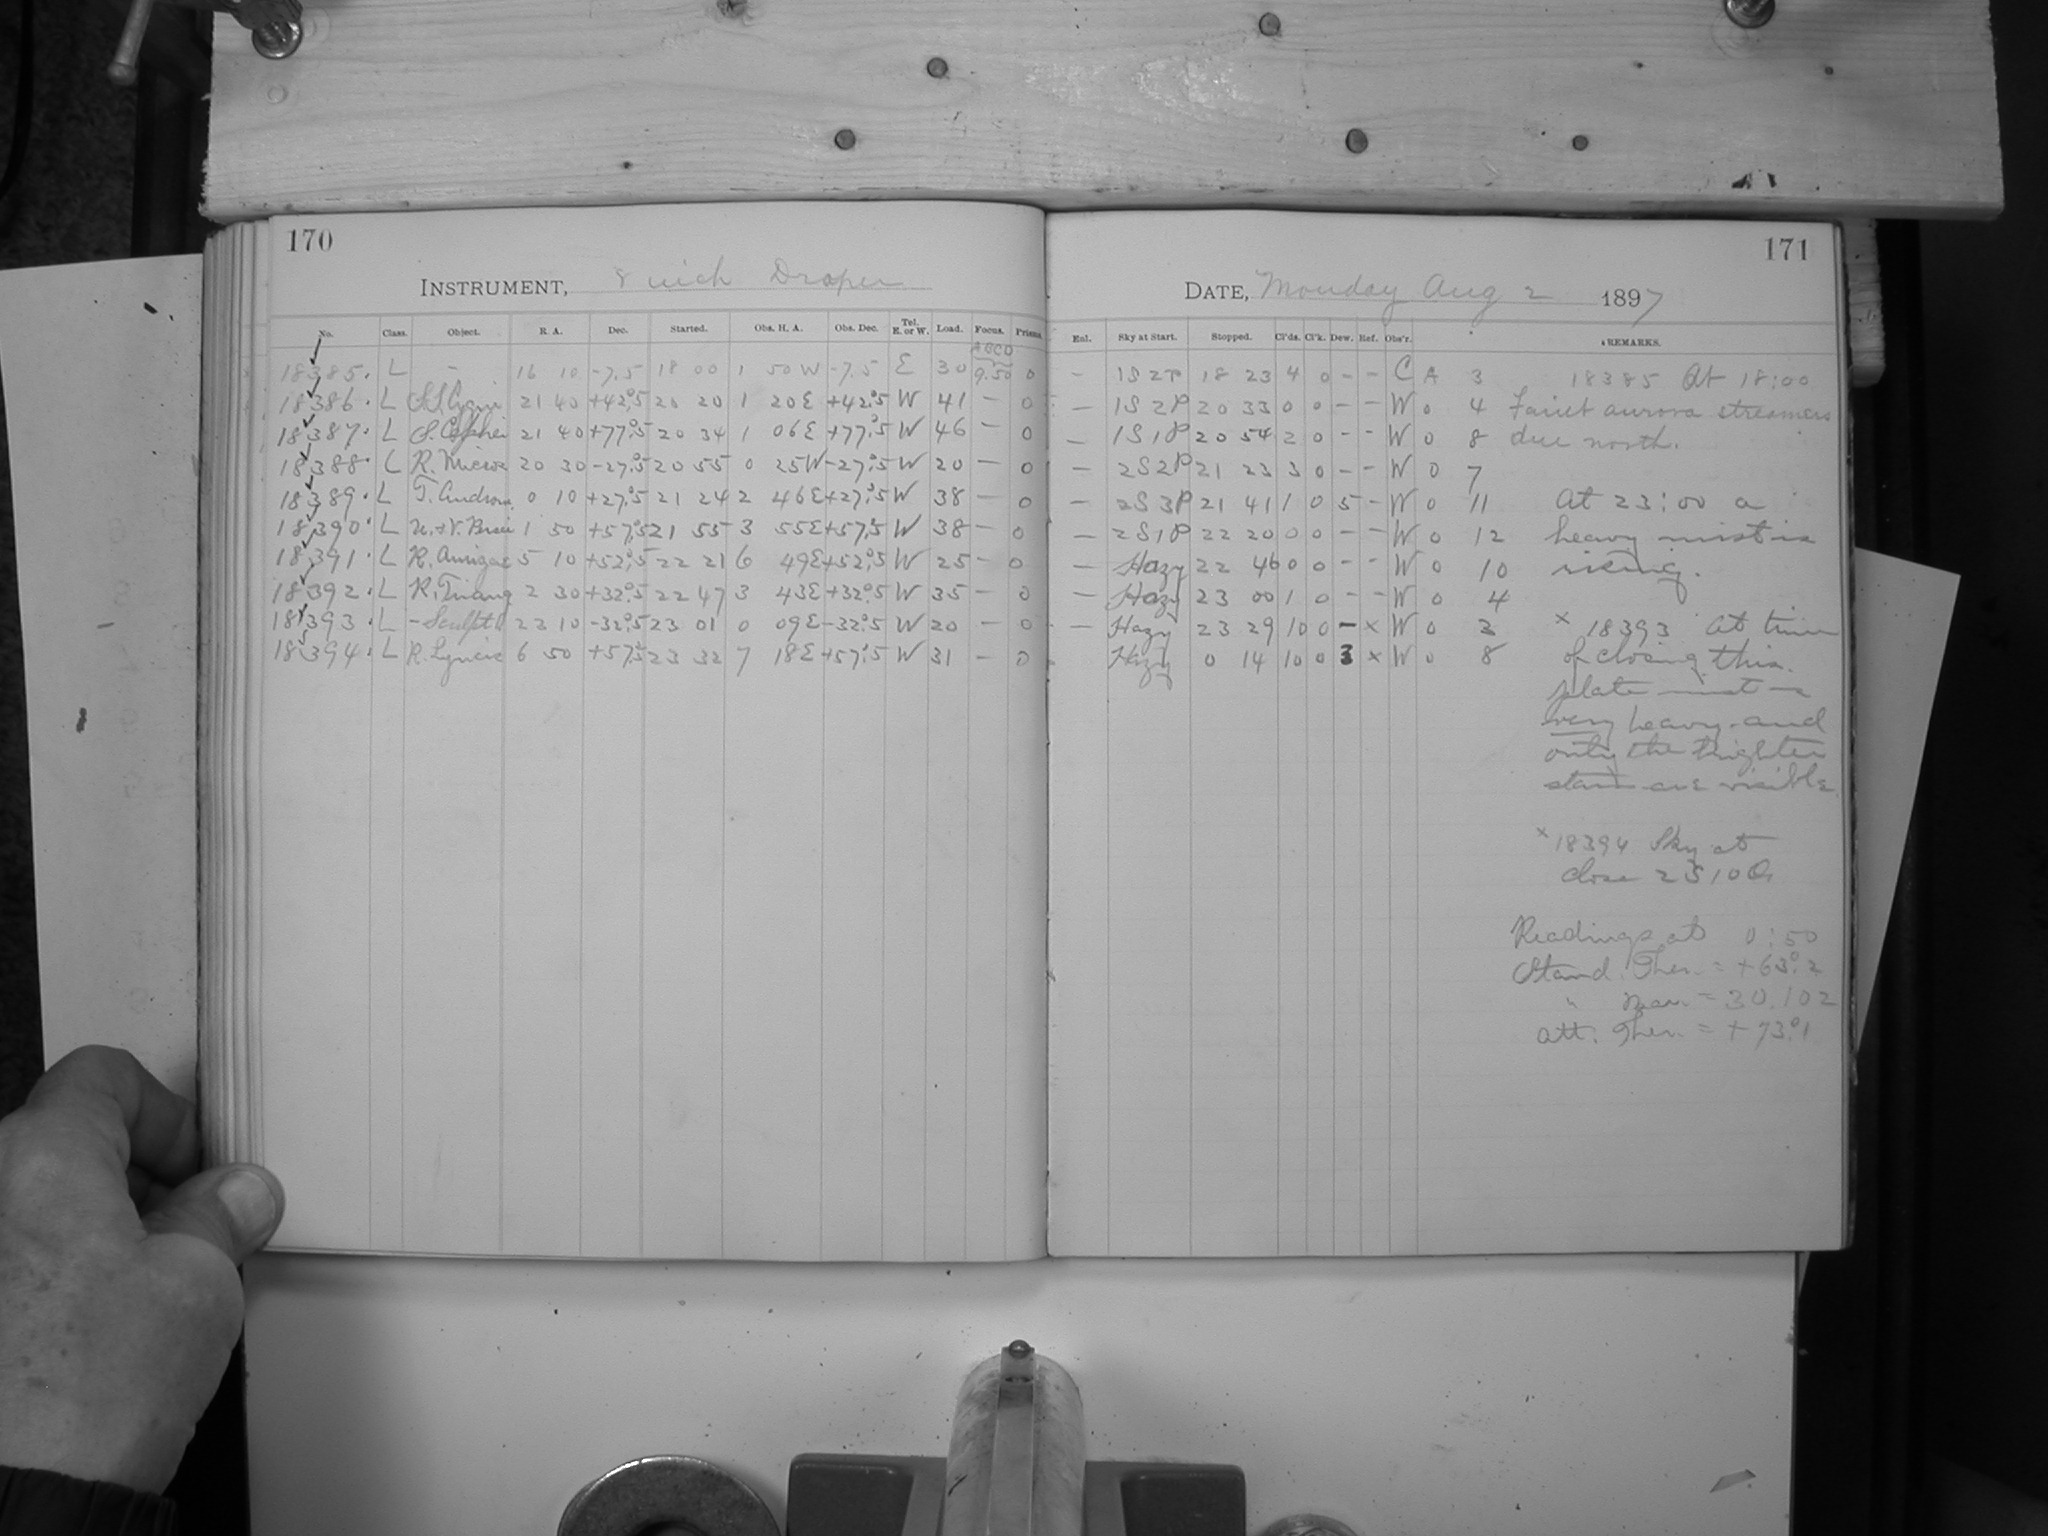 170
INSTRUMENT, 8 inch Draper
No. Class. Object. R. A. Dec. Started. Obs. H. A. Obs. Dec. Tel. E. or W. Load. Focus. Prisms
ABCD
18385. L - 16 10 -7.5 18 00 1 50 W -7.5 E 30 9.50 0
18386. L SS Cygni 21 40 +42°.5 20 20 1 20E +42°.5 W 41 — 0
18387. L S. Cephei 21 40 +77°.5 20 34 1 06E +77°.5 W 46 — 0
18388. L R. Micros 20 30 -27°.5 20 55 0 25W -27°.5 W 20 — 0
18389. L T. Androm 0 10 +27°.5 21 24 2 46E +27°.5 W 38 — 0
18390. L U.+V. Persei 1 50 +57°.5 21 55 3 55E +57°.5 W 38 — 0
18391. L R. Aurigae 5 10 +52°.5 22 21 6 49E +52°.5 W 25 — 0
18392. L R. Triang 2 30 +32°.5 22 47 3 43E +32°.5 W 35 — 0
18393. L - Sculpt 23 10 -32°.5 23 01 0 09E -32°.5 W 20 — 0
18394. L R. Lyncis 6 50 +57°.5 23 32 7 18E +57°.5 W 31 — 0
171
DATE, Monday Aug 2 1897
Enl. Sky at Start. Stopped. Cl'ds. Cl'k. Dew. Ref. Obs'r. REMARKS.
— 1S2P 18 23 4 0 - - C A 3 18385 At 18:00
— 1S2P 20 33 0 0 - - W 0 4 Faint aurora streamers
— 1S1P 20 54 2 0 - - W 0 8 due north.
— 2S2P 21 23 3 0 - - W 0 7
— 2S3P 21 41 1 0 5 - W 0 11 At 23:00 a
— 2S1P 22 20 0 0 - - W 0 12 heavy mist is
— Hazy 22 46 0 0 - - W 0 10 rising.
— Hazy 23 00 1 0 - - W 0 4
— Hazy 23 29 10 0 - x W 0 3 x 18393 At time
Hazy 0 14 10 0 3 x W 0 8 of closing this
plate mist is
very heavy and
only the brighter
stars are visible.
x 18394 Sky at
close 2S10Q
Readings at 0:50
Stand. Ther. = +63°.2
" Bar. = 30.102
Att. Ther. = +73°.1